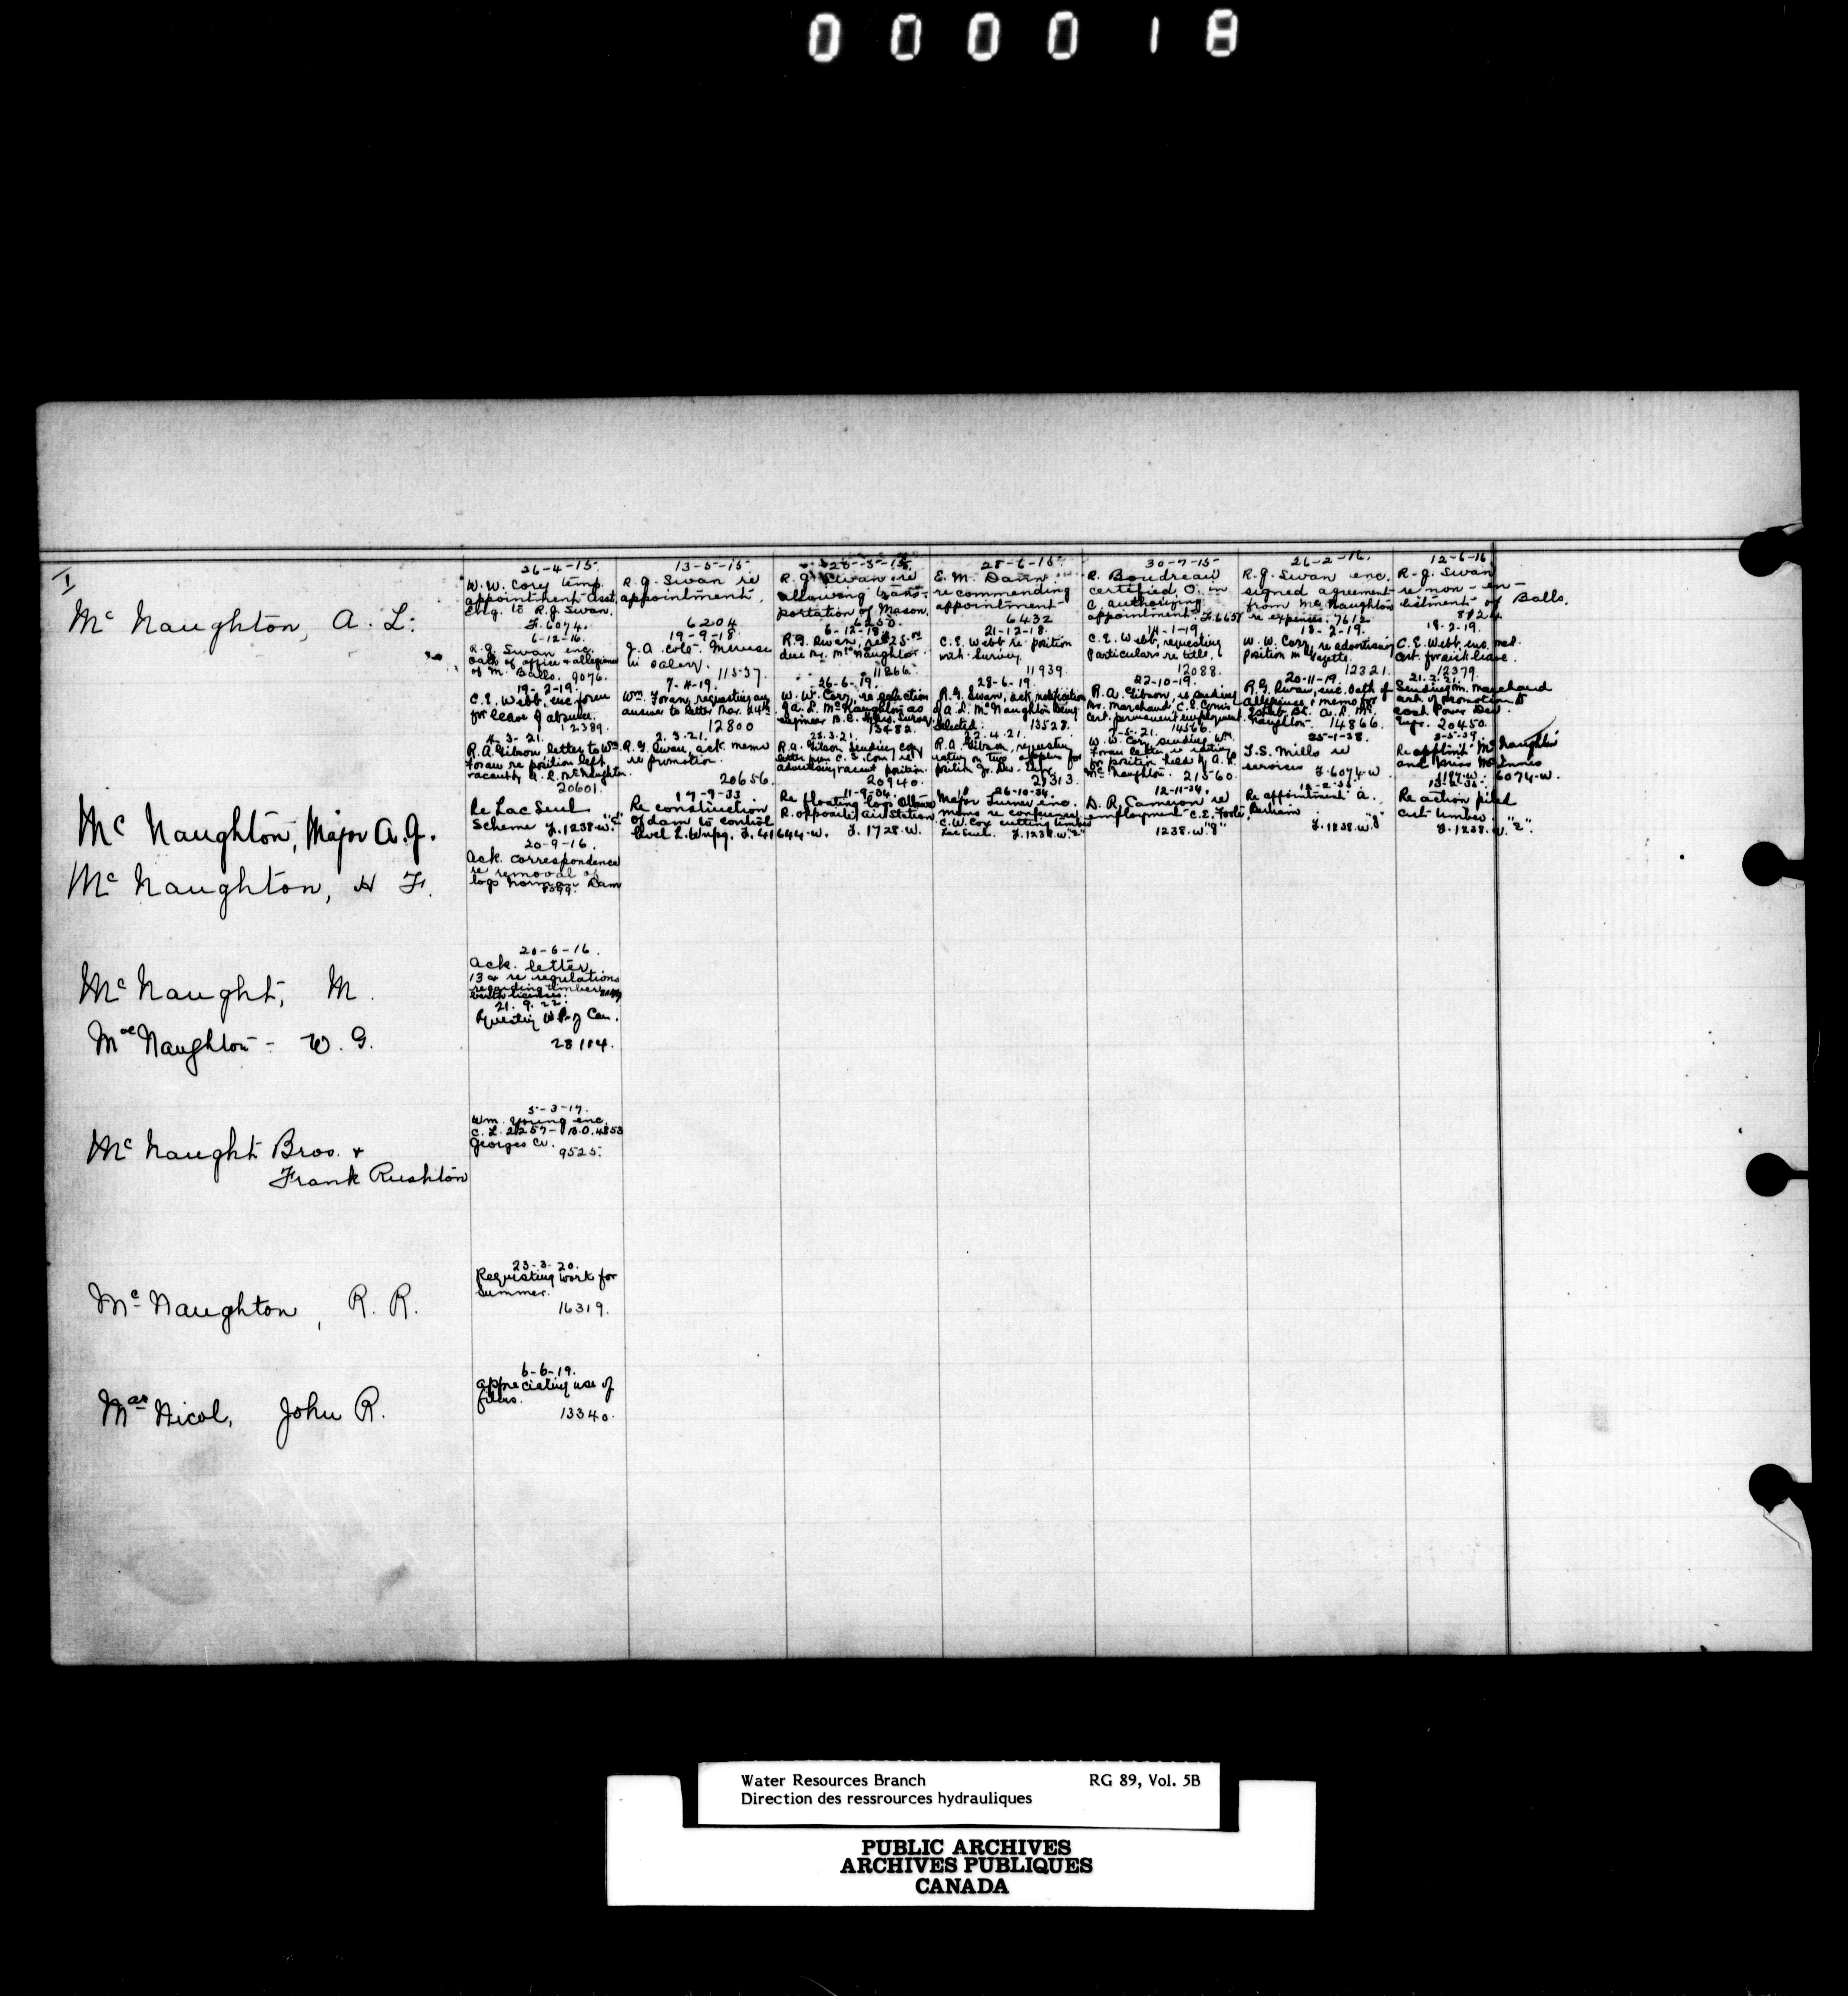 000018
I
Mc Naughton, A. L.
26-4-15.
W. W. Cory temp.
appointment Asst.
Eng. to R.G. Swan.
F. 6074.
13-5-15
R. G. Swan re
appointment.
6204
R. G. Swan re
allowing trans-
portation of Mason.
6250.
28-6-15.
E. M. Dann
recommending
appointment
6432
30-7-15
R. Boudreau
certified, O. in
C. authorizing
appointment F. 6657
26-2-16.
R. G. Swan enc.
signed agreement
from Mc Naughton
re expenses. 7612
12-6-16
R. G. Swan
re non-en-
listment of Balls.
8724
6-12-16.
R. G. Swan enc.
oath of office & allegiance
of M. Balls. 9076.
19-9-18.
J. A. Coté. Increase
in salary.
11537
6-12-18
R. G. Swan, re $25.00
due Mr. McNaughton.
11866.
21-12-18.
C. E. Webb re position
with Survey.
11939.
14-1-19
C. E. Webb, requesting
Particulars re title.
12088.
18-2-19.
W. W. Cory, re advertising
position in Gazette.
12321.
18-2-19.
C. E. Webb, enc. med.
Cert. for sick leave.
12379
19-2-19.
C. E. Webb, enc. form
for leave of absence.
12389.
7-4-19.
Wm. Foran, requesting an
answer to letter Mar. 24th.
12800
26-6-19.
W. W. Cory, re selection
of A. L. McNaughton as
engineer B. C. Hydro. Survey.
13482.
28-6-19.
R. G. Swan, ack. notification
of A. L. McNaughton being
selected.
13528.
22-10-19.
R. A. Gibson, re sending
Mr. Marchand, C. S. Comis
Cert. permanent employment.
14566.
20-11-19.
R. G. Swan, enc. Oath of
Allegiance & memo for
A. L. Mc
Naughton. 14866.
21.2.21.
Sending Wm. Marchand
cert. of Promotion to
Engr. 20450.
4-3-21.
R. A. Gibson, letter to Wm
Foran re position left
vacant by A. L. McNaughton.
20601.
2.3.21.
R. G. Swan, ack. memo
re promotion.
20656.
23.3.21.
R. A. Gibson sending copy
letter from C. S. Com. re
advertising vacant position.
20940.
22.4.21.
R. A. Gibson, requesting
rating on two applns for
21313.
W. W. Cory sending Wm.
Foran letter, re rating
for position held by A. L.
McNaughton. 21560.
25-1-38.
T. S. Mills re
services
F. 6074-W
3-5-39.
Re applmt Mc Naughton
and Mc Innes
6074-W.
Mc Naughton, Major A. G.
Re Lac Seul
Scheme F. 1238-W. "C"
17-9-33
Re construction
of dam to control
level L. Wnpg. F. 41644-W.
11-9-34.
Re floating logs Ottawa
R. opposite Air Station
F. 1728-W.
26-10-34.
Major Turner enc.
memo re conference
C. W. Cox cutting timber
Lac Seul. F. 1238-W. "E"
12-11-34.
D. R. Cameron re
employment C. E. Foote.
1238-W. "8"
12-2-35.
Re appointment A.
Berham
F. 1238-W. "8"
13-2-35.
Re action piled
cut timber
F. 1238-W. "E".
Mc Naughton, H F.
20-9-16.
Ack. correspondence
re removal of
logs Norman Dam
8399.
Mc Naught, M.
20-6-16.
Ack. letter
13th re regulations
regarding timber
berth licenses.
Mac Naughton - W. G.
21. 9. 22.
Requesting W. P. of Can.
28104.
Mc Naught Bros. &
Frank Rushton
5-3-17.
Wm. Young enc.
C. L. 2257 - B.O. 4853
Georges Cr.
9525.
Mc Naughton, R. R.
23-3-20.
Requesting work for
Summer.
16319.
Mac Nicol, John R.
6-6-19.
Appreciating use of
films.
13340.
Water Resources Branch RG 89, Vol. 5B
Direction des ressrources hydrauliques
PUBLIC ARCHIVES
ARCHIVES PUBLIQUES
CANADA